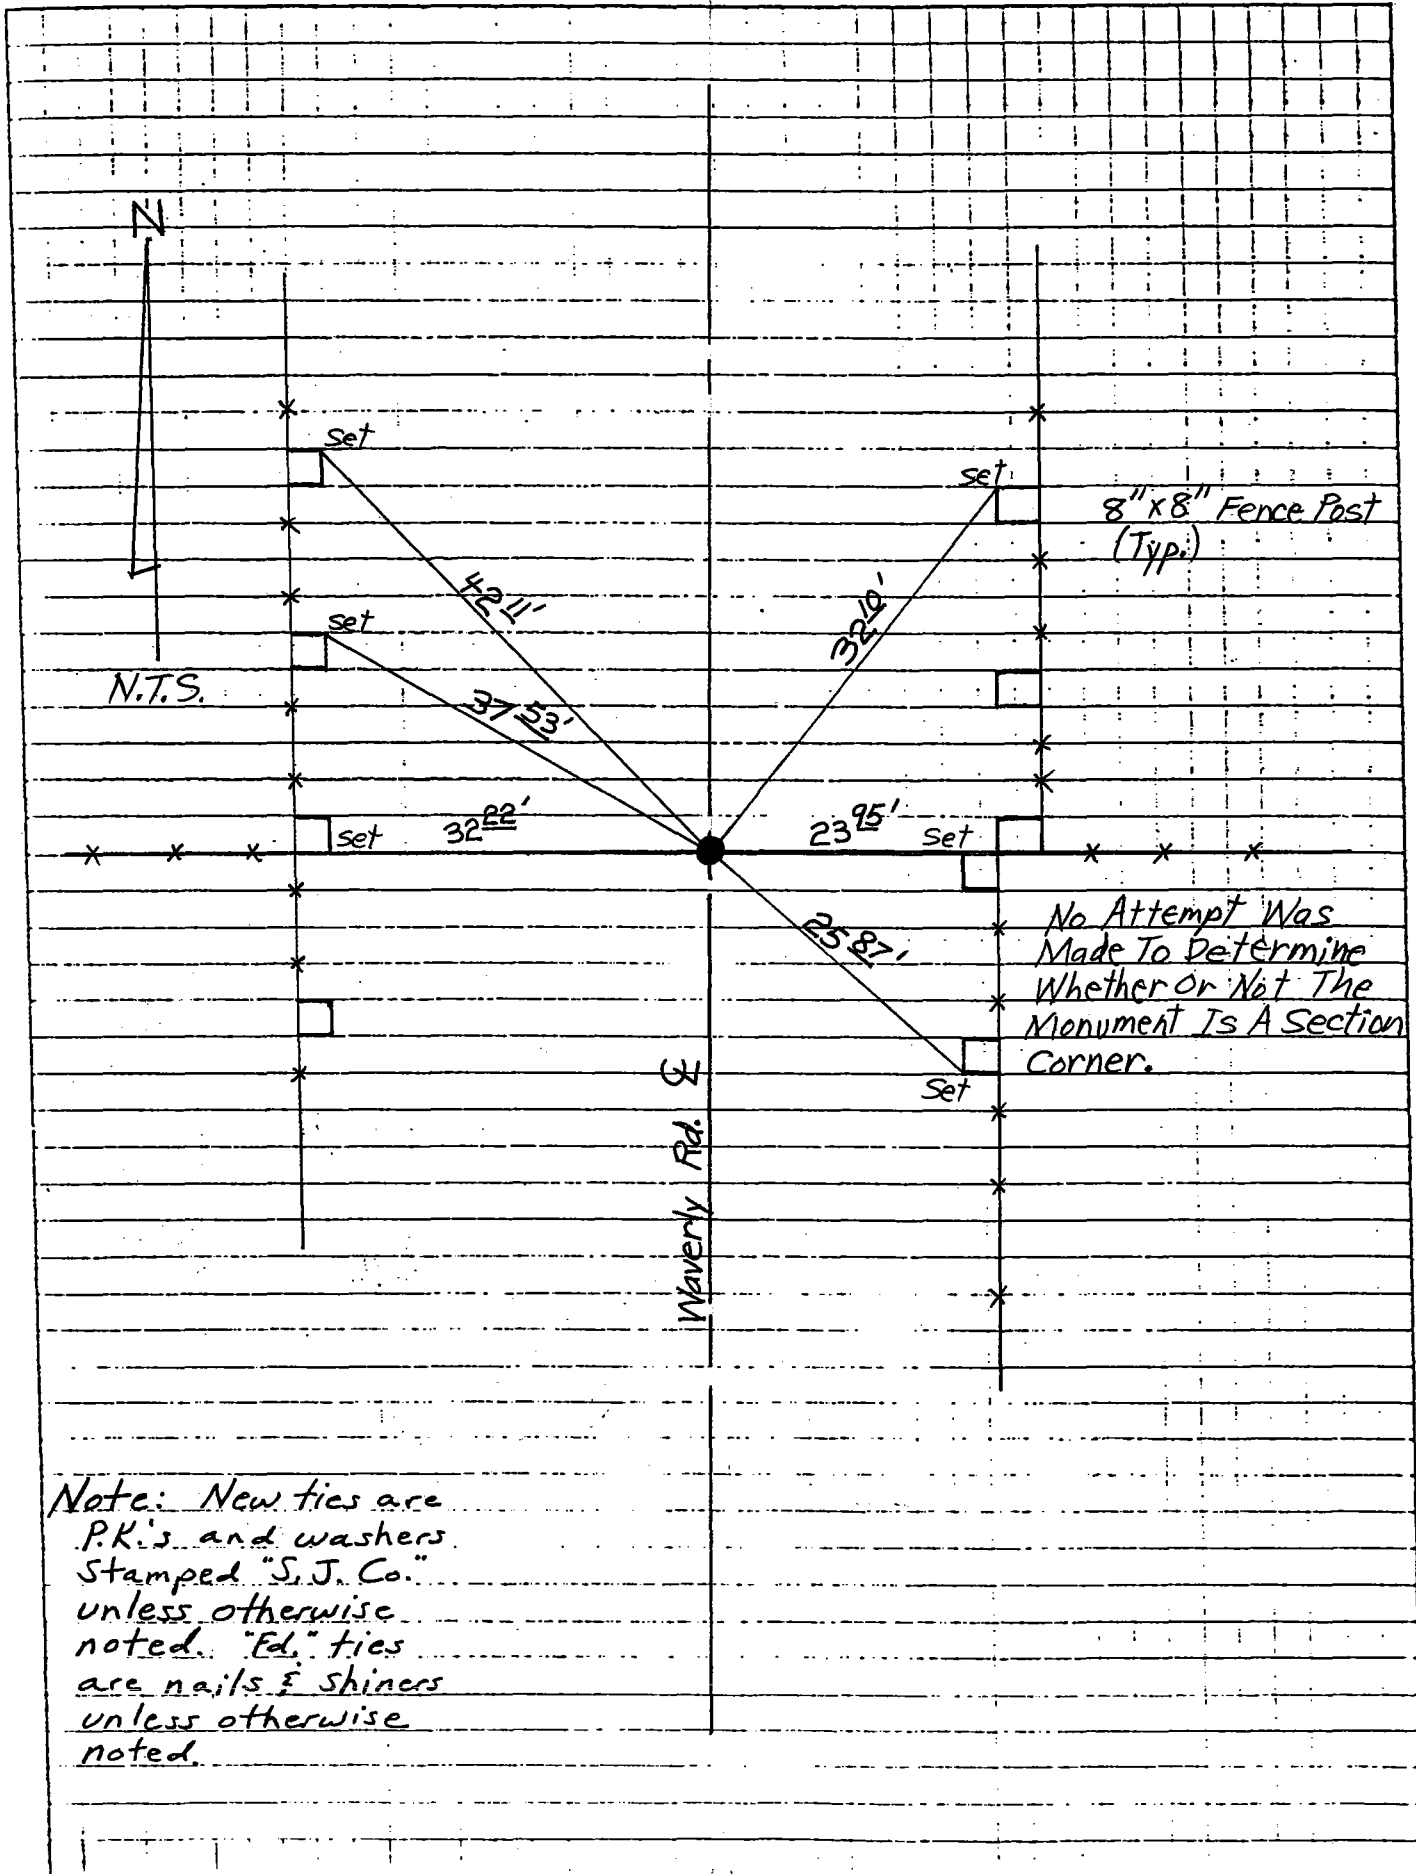 N
set
set
8"x8" Fence Post
(Typ.)
42 11'
32 10'
set
N.T.S.
37 53'
set
32 22'
23 95'
set
25 87'
No Attempt Was
Made To Determine
Whether Or Not The
Monument Is A Section
Corner.
Set
Waverly Rd. ℄
Note: New ties are
P.K.'s and washers
Stamped "S.J. Co."
unless otherwise
noted. "Fd." ties
are nails & shiners
unless otherwise
noted.